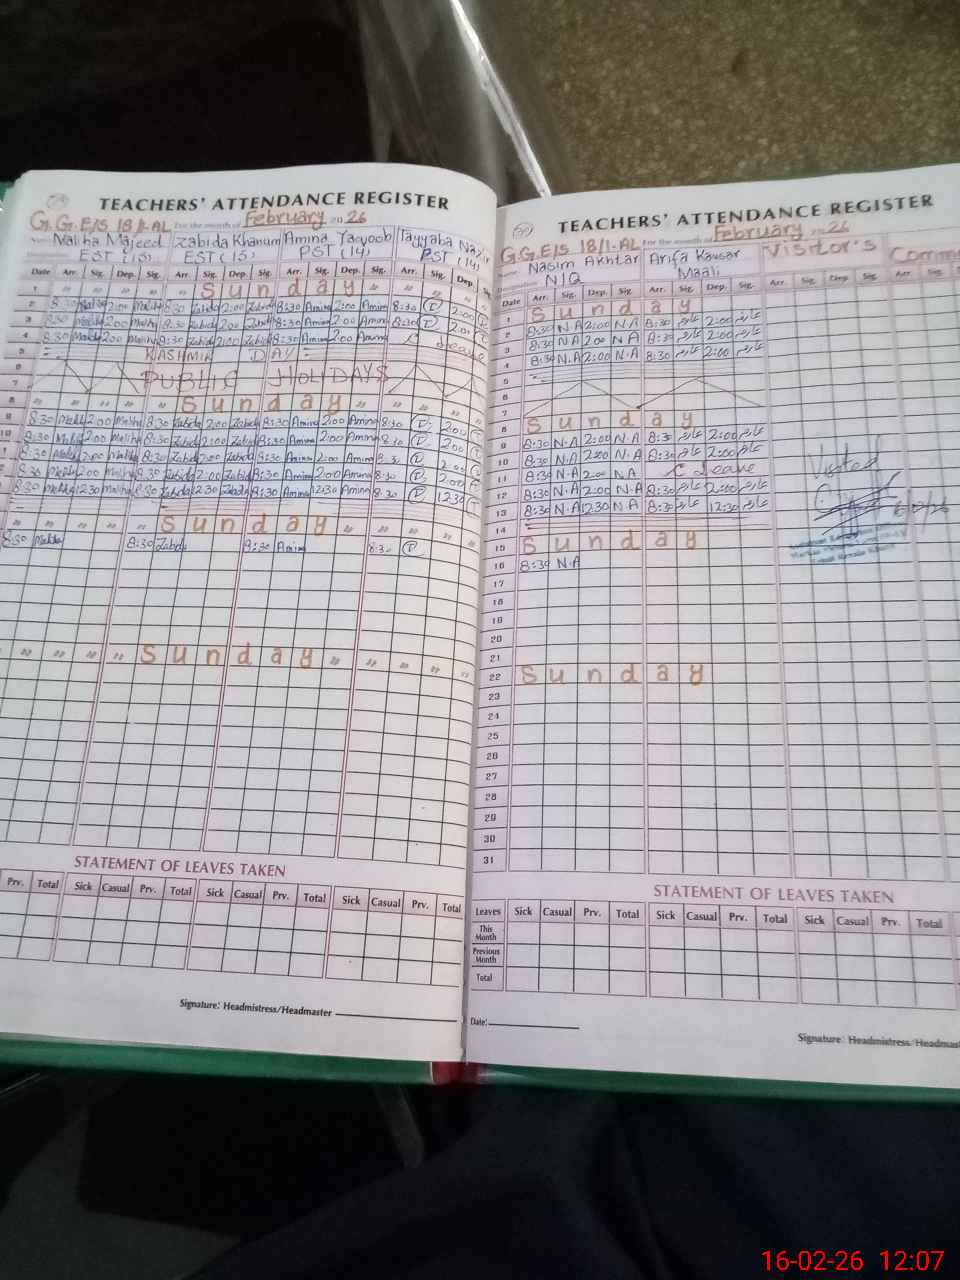 TEACHERS' ATTENDANCE REGISTER
G.G.E/S 18/1-AL For the month of February 2026
Maliha Majeed Zabida Khanum Amina Yaqoob Tayyaba Nazir
EST (15) EST (15) PST (14) PST (14)
Date Arr. Sig. Dep. Sig. Arr. Sig. Dep. Sig. Arr. Sig. Dep. Sig. Arr. Sig. Dep. Sig.
1 Sunday
2 8:30 Maliha 2:00 Maliha 8:30 Zabida 2:00 Zabida 8:30 Amina 2:00 Amina 8:30 2:00
3 8:30 Maliha 2:00 Maliha 8:30 Zabida 2:00 Zabida 8:30 Amina 2:00 Amina 8:30 2:00
4 8:30 Maliha 2:00 Maliha 8:30 Zabida 2:00 Zabida 8:30 Amina 2:00 Amina C leave
5 KASHMIR DAY
6
7 PUBLIC HOLIDAYS
8 Sunday
9 8:30 Maliha 2:00 Maliha 8:30 Zabida 2:00 Zabida 8:30 Amina 2:00 Amina 8:30 2:00
10 8:30 Maliha 2:00 Maliha 8:30 Zabida 2:00 Zabida 8:30 Amina 2:00 Amina 8:30 2:00
8:30 Maliha 2:00 Maliha 8:30 Zabida 2:00 Zabida 8:30 Amina 2:00 Amina 8:30 2:00
8:30 Maliha 2:00 Maliha 8:30 Zabida 2:00 Zabida 8:30 Amina 2:00 Amina 8:30 2:00
8:30 Maliha 12:30 Maliha 8:30 Zabida 12:30 Zabida 8:30 Amina 12:30 Amina 8:30 12:30
Sunday
8:30 Maliha 8:30 Zabida 8:30 Amina 8:30
Sunday
STATEMENT OF LEAVES TAKEN
Prv. Total Sick Casual Prv. Total Sick Casual Prv. Total Sick Casual Prv. Total
Signature: Headmistress/Headmaster
TEACHERS' ATTENDANCE REGISTER
G.G.E/S 18/1-AL For the month of February 2026
Name Nasim Akhtar Arifa Kausar Visitor's Comm
Designation N/Q Maali
Date Arr. Sig. Dep. Sig. Arr. Sig. Dep. Sig. Arr. Sig. Dep. Sig. Arr. Sig.
1 Sunday
2 8:30 N.A 2:00 N.A 8:30 عارفہ 2:00 عارفہ
3 8:30 N.A 2:00 N.A 8:30 عارفہ 2:00 عارفہ
4 8:30 N.A 2:00 N.A 8:30 عارفہ 2:00 عارفہ
5
6
7
8 Sunday
9 8:30 N.A 2:00 N.A 8:30 عارفہ 2:00 عارفہ
10 8:30 N.A 2:00 N.A 8:30 عارفہ 2:00 عارفہ
11 8:30 N.A 2:00 N.A C leave
12 8:30 N.A 2:00 N.A 8:30 عارفہ 2:00 عارفہ
13 8:30 N.A 12:30 N.A 8:30 عارفہ 12:30 عارفہ
14
15 Sunday
16 8:30 N.A
17
18
19
20
21
22 Sunday
23
24
25
26
27
28
29
30
31
Visited
STATEMENT OF LEAVES TAKEN
Leaves Sick Casual Prv. Total Sick Casual Prv. Total Sick Casual Prv. Total
This Month
Previous Month
Total
Date:
Signature: Headmistress/Headmas
16-02-26 12:07